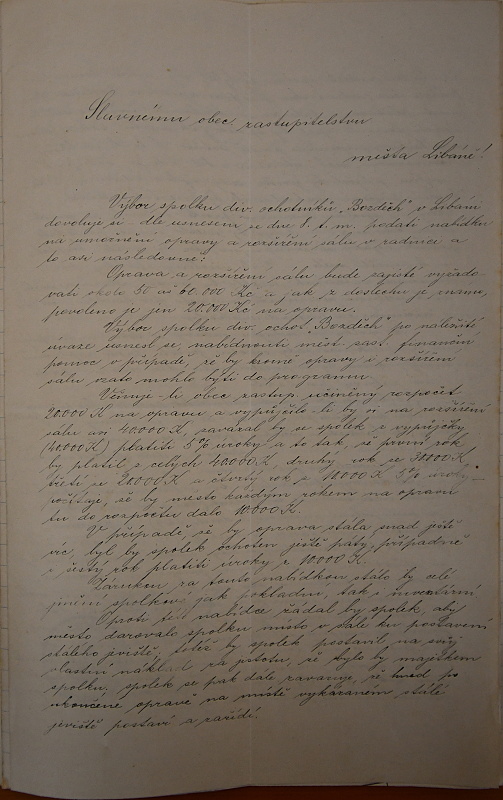 Slavnému obec. zastupitelstvu
města Libáně!
Výbor spolku div. ochotníků „Bozděch“ v Libáni
dovoluje si dle usnesení ze dne 8. t. m. podati nabídku
na umožnění opravy a rozšíření sálu v radnice a
to asi následovně:
Oprava a rozšíření sálu bude zajisté vyžado-
vati okolo 50 až 60.000 Kč a jak z doslechu je známo,
povoleno je jen 20.000 Kč na opravu.
Výbor spolku div. ochot. „Bozděch“ po náležité
úvaze usnesl se nabídnouti měst. zast. finanční
pomoc v případě, že by kromě opravy i rozšíření
sálu vzato mohlo býti do programu.
Věnuje-li obec. zastup. učiněný rozpočet
20.000 K na opravu a vypůjčilo-li by si na rozšíření
sálu asi 40.000 K, zavázal by se spolek z výpůjčky
(40.000 K) platiti 5% úroky a to tak, že první rok
by platil z celých 40.000 K, druhý rok ze 30.000 K
třetí ze 20.000 K a čtvrtý rok z 10.000 K 5% úroky
počítaje, že by město každým rokem na opravu
tu do rozpočtu dalo 10.000 K.
V případě, že by oprava stála snad ještě
víc, byl by spolek ochoten ještě pátý, případně
i šestý rok platiti úroky z 10.000 K.
Zárukou za touto nabídkou stálo by celé
jmění spolkové jak pokladní, tak i inventární.
Proti této nabídce žádal by spolek, aby
město darovalo spolku místo v sále ku postavení
stálého jeviště, jež by spolek postavil na svůj
vlastní náklad za jistotu, že bylo by majetkem
spolku. Spolek se pak dále zavazuje, že hned po
skončené opravě na místě vykázaném stálé
jeviště postaví a zařídí.